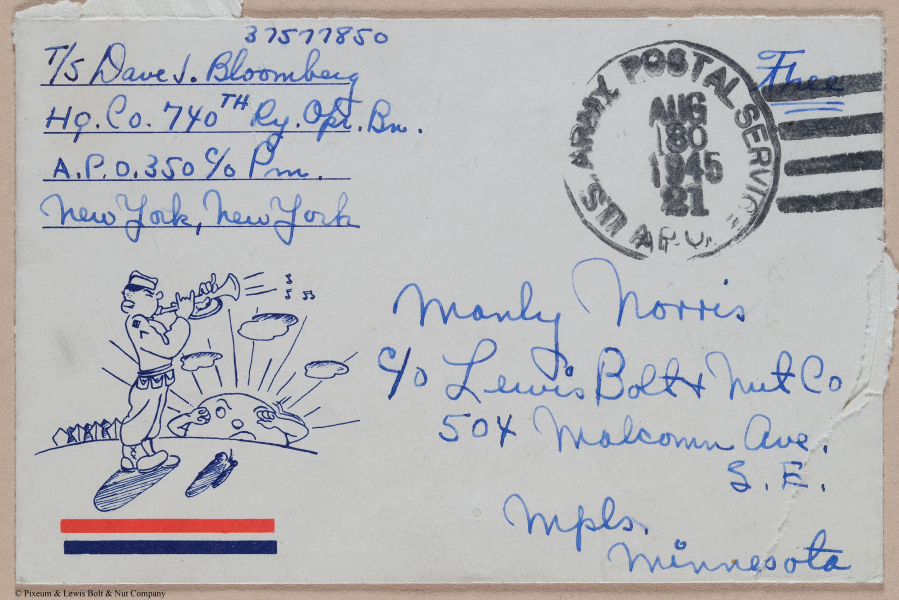 37577850
T/5 Dave J. Bloomberg
Hq. Co. 740TH Ry. Opr. Bn.
A.P.O. 350 c/o Pm.
New York, New York
Free
U.S. ARMY POSTAL SERVICE
AUG
30
1945
21
A.P.O.
Manly Norris
c/o Lewis Bolt & Nut Co
504 Malcomn Ave.
S.E.
Mpls.
Minnesota
© Pixeum & Lewis Bolt & Nut Company